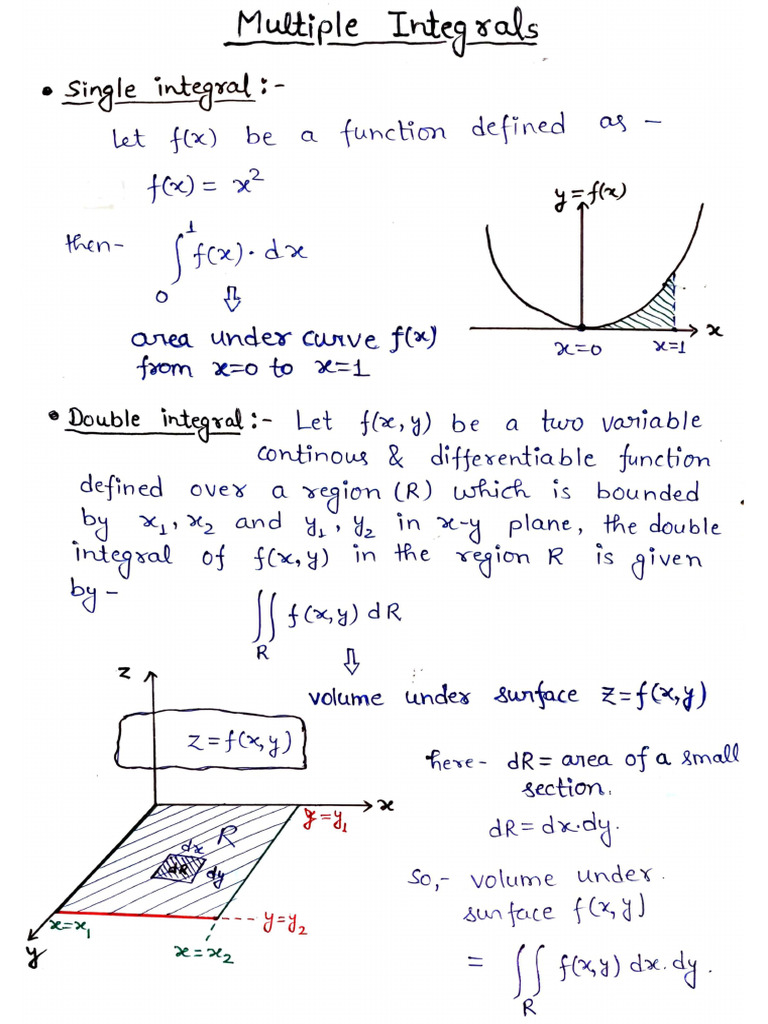 Multiple Integrals
• Single integral :-
Let f(x) be a function defined as -
f(x) = x²
y = f(x)
then- ∫₀¹ f(x)· dx
⇓
area under curve f(x)
from x=0 to x=1
x
x=0
x=1
• Double integral :- Let f(x,y) be a two variable
continous & differentiable function
defined over a region (R) which is bounded
by x₁, x₂ and y₁, y₂ in x-y plane, the double
integral of f(x,y) in the region R is given
by -
∬ f(x,y) dR
R
⇓
volume under surface z=f(x,y)
z
z=f(x,y)
x
y=y₁
R
dx
dR
dy
x=x₁
y=y₂
x=x₂
y
here- dR = area of a small
section.
dR = dx.dy.
So,- volume under
surface f(x,y)
= ∬ f(x,y) dx.dy.
R